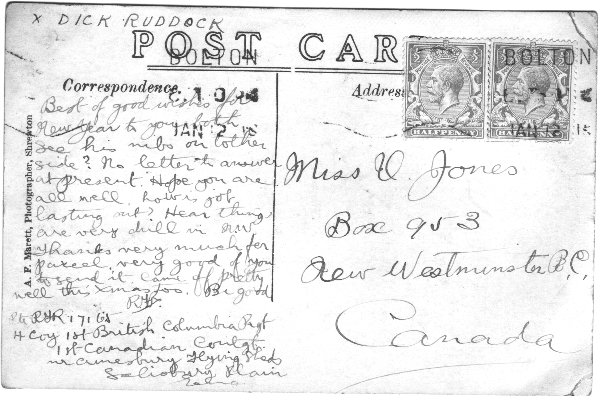 x DICK RUDDOCK
POST CAR
BOLTON
BOLTON
Correspondence.
Address
JAN 12 15
JAN 12 15
HALFPENNY
HALFPENNY
A. F. Marett, Photographer, Shrewton
Best of good wishes for
New Year to you both
see his nibs on tother
side? No letter to answer
at present. Hope you are
all well. How is job
lasting out? Hear things
are very dull in N.W.
Thanks very much for
parcel very good of you
to send it came off pretty
well this Xmas too. Be good
Miss V. Jones
Box 953
New Westminster B.C.
Canada
H Coy 1st British Columbia Regt
1st Canadian Contgt
nr Amesbury Flying Sheds
Salisbury Plain